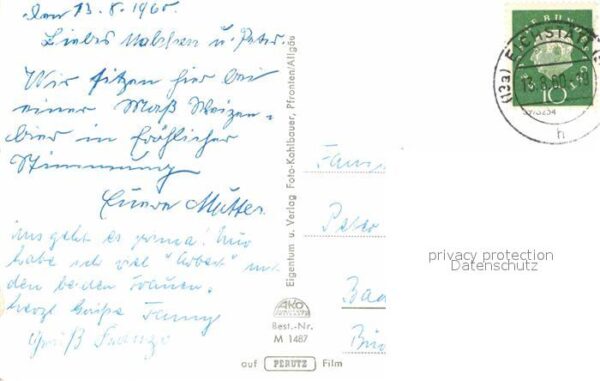 den 13.8.1960
Liebes Malchen u. Peter.
Wir sitzen hier bei
einer Maß Weizen-
bier in fröhlicher
Stimmung
Euere Mutter.
uns geht es prima! Nur
habe ich viel "Arbeit" mit
den beiden Frauen.
herzl. Grüße Fanny
Gruß Franze
Eigentum u. Verlag Foto-Kohlbauer, Pfronten/Allgäu
AKO
Best.-Nr.
M 1487
auf PERUTZ Film
(13a) EICHSTÄTT
13.8.60
h
10
Peter
privacy protection
Datenschutz